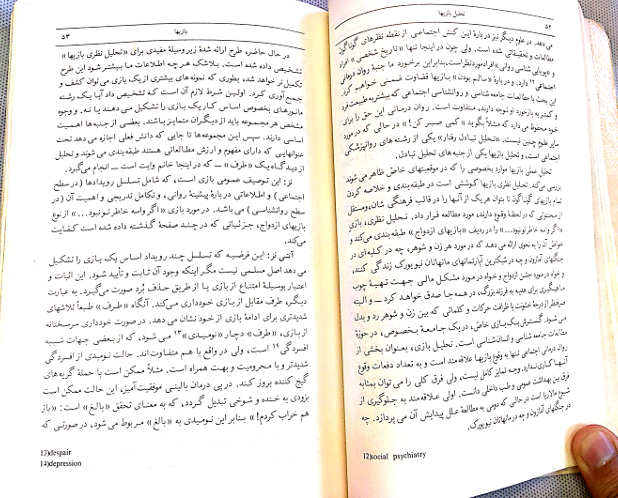 ۵۲
تحلیل بازیها
می دهد. در علوم دیگر نیز دربارهٔ این کنش اجتماعی از نقطه نظرهای گوناگون
مطالعات و تحقیقاتی شده است. ولی چون در اینجا تنها «تاریخ شخصی» افراد
و «پویایی شناسی روانی» افراد مورد نظر است، بنابراین برخورد ما جنبهٔ روان درمانی
اجتماعی ۱۲ دارد. و دربارهٔ «سالم بودن» بازیها قضاوت ضمنی خواهیم کرد.
این بحث با مطالعات جامعه شناسی و روانشناسی اجتماعی که بیشتر به طبیعت فرد
و کمتر به بازخورد او توجه دارند، متفاوت است. روان درمانی این حق را برای
خود محفوظ می دارد که مثلاً بگوید «کمی صبر کن!» در حالی که در مورد
سایر علوم چنین نیست. «تحلیل تبادل رفتار» یکی از رشته های روانپزشکی
اجتماعی است، و تحلیل بازیها یکی از جنبه های تحلیل تبادل.
تحلیل عملی بازیها موارد بخصوصی را که در موقعیتهای خاص ظاهر می شوند
بررسی می‌کند. تحلیل نظری بازیها کوششی است در طبقه بندی و خلاصه کردن
تمام بازیهای گوناگون تا بتوان هر یک از آنها را در قالب فرهنگی شان، و مستقل
از محتوایی که در لحظهٔ وقوع دارند، مورد مطالعه قرار داد. تحلیل نظری، بازی
«اگر واسه خاطر تو نبود...» را در ردیف «بازیهای ازدواج» طبقه بندی می‌کند و
خواص آن را به نحوی ارائه می دهد که در مورد هر زن و شوهر، چه در کلبه ای در
جنگلهای آمازون و چه در شیکترین آپارتمانهای مانهاتان نیویورک زندگی کنند،
و خواه در مورد جشن ازدواج و خواه در مورد مشکل مالی جهت تهیهٔ چوب
ماهیگیری برای هدیه به فرزند بزرگ، در همه جا صدق خواهد کرد — و البته
صرفنظر از درجهٔ خشونت یا ظرافت حرکات و کلماتی که بین زن و شوهر رد و بدل
می شود. گسترش یک بازی خاص، در یک جامعهٔ بخصوص، در حوزهٔ
مطالعات جامعه شناسی و انسان شناسی است. تحلیل بازی، بعنوان بخشی از
روان درمانی اجتماعی تنها به وقوع بازیها علاقه مند است و به تعداد دفعات وقوع
آنها کاری ندارد. وجه تمایز کامل نیست، ولی فرق کلی را می توان بمثابه
فرق بین بهداشت عمومی و طب داخلی دانست. اولی علاقه مند به جلوگیری از
شیوع مالاریا است در حالی که دومی به مطالعهٔ علل پیدایش آن می پردازد. چه
در جنگلهای آمازون و چه در مانهاتان نیویورک.
12)social psychiatry
بازیها
۵۳
در حال حاضر، طرح ارائه شدهٔ زیر وسیلهٔ مفیدی برای «تحلیل نظری بازیها»
تشخیص داده شده است. بلاشک هر چه اطلاعات ما بیشتر شود این طرح
تکمیل تر خواهد شد، بطوری که نمونه های بیشتری از یک بازی می توان کشف و
جمع آوری کرد. اولین شرط لازم آن است که تشخیص داد آیا یک رشته
مانورهای بخصوص اساس کار یک بازی را تشکیل می دهند یا نه. و وجوه
مشخص هر مجموعه باید از دیگران متمایز باشند. بعضی از جنبه ها اهمیت
اساسی دارند. سپس این مجموعه ها تا جایی که دانش فعلی اجازه می دهد تحت
عنوانهایی که دارای مفهوم و ارزش مطالعاتی هستند طبقه بندی می شوند و تحلیل
از دیدگاه یک «طرف» — که در اینجا خانم وایت است — انجام می‌گیرد.
تز: این توصیف عمومی بازی است، که شامل تسلسل رویدادها (در سطح
اجتماعی) و اطلاعاتی دربارهٔ پیشینهٔ روانی، و تکامل تدریجی و اهمیت آن (در
سطح روانشناسی) می باشد. در مورد بازی «اگر واسه خاطر تو نبود...» از نوع
بازیهای ازدواج، جزئیاتی که در چند صفحهٔ گذشته داده شده است کفایت
می‌کند.
آنتی تز: این فرضیه که تسلسل چند رویداد اساس یک بازی را تشکیل
می دهد اصل مسلمی نیست مگر اینکه وجود آن ثابت و تأیید شود. این اثبات و
اعتبار بوسیلهٔ امتناع از بازی یا از طریق حذف بُرد صورت می‌گیرد. به عبارت
دیگر، طرف مقابل از بازی خودداری می‌کند. آنگاه «طرف» طبعاً تلاشهای
شدیدتری برای ادامهٔ بازی از خود نشان می دهد. در صورت خودداری سرسختانه
از بازی، «طرف» دچار «نومیدی»۱۳ می شود، که از بعضی جهات شبیه
افسردگی۱۴ است، ولی در واقع با هم متفاوت‌اند. حالت نومیدی از افسردگی
شدیدتر و با محرومیت و بهت همراه است. مثلاً ممکن است با حملهٔ گریه های
گیج کننده بروز کند. در پی درمان بالینی موفقیت آمیز، این حالت ممکن است
بزودی به خنده و شوخی تبدیل گردد، که به معنای تحقق «بالغ» است: «باز
هم خراب کردم!» بنابر این نومیدی به «بالغ» مربوط می شود، در صورتی که
13)despair
14)depression